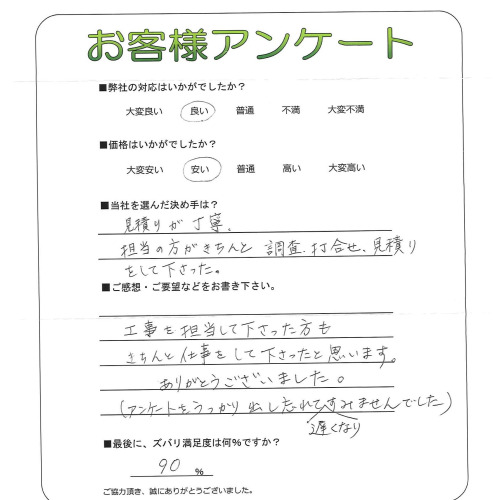 お客様アンケート
■弊社の対応はいかがでしたか？
大変良い 良い 普通 不満 大変不満
■価格はいかがでしたか？
大変安い 安い 普通 高い 大変高い
■当社を選んだ決め手は？
見積りが丁寧、
担当の方がきちんと調査、打合せ、見積り
をして下さった。
■ご感想・ご要望などをお書き下さい。
工事を担当して下さった方も
きちんと仕事をして下さったと思います。
ありがとうございました。
(アンケートをうっかり出し忘れてすみませんでした)
遅くなり
■最後に、ズバリ満足度は何%ですか？
90 %
ご協力頂き、誠にありがとうございました。